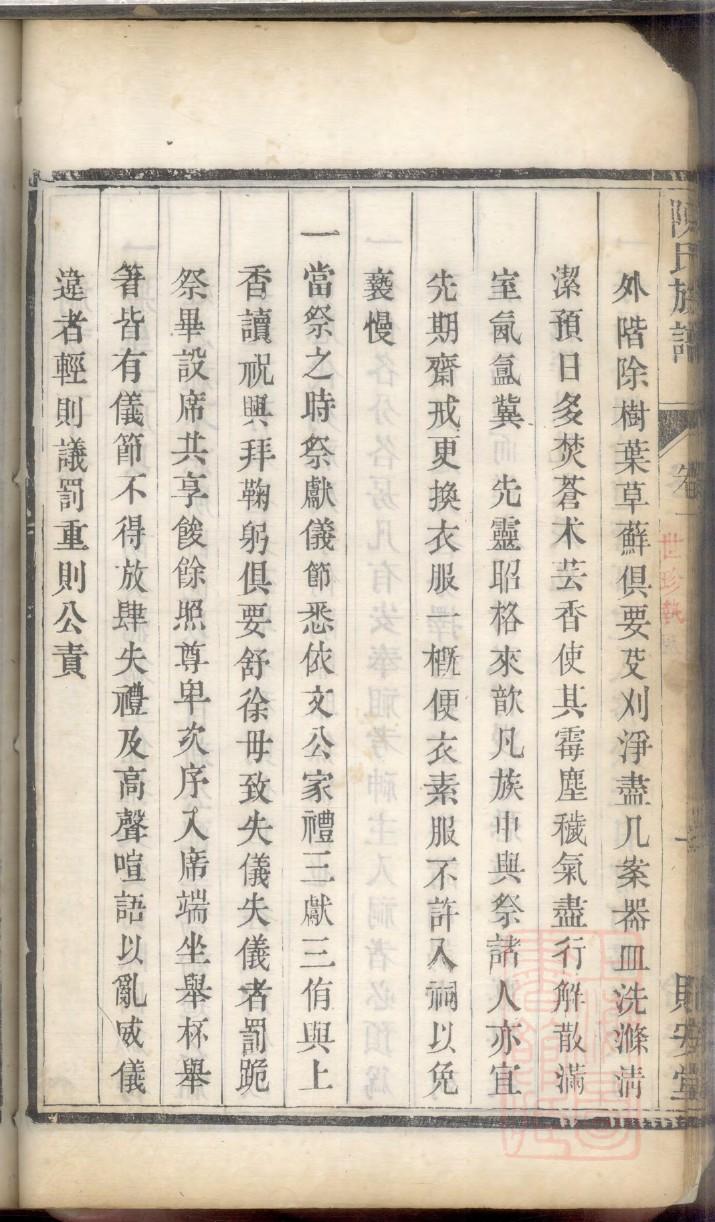 陳氏族譜 卷一 世珍執 貽安堂
外階除樹葉草蘚俱要芟刈淨盡几案器皿洗滌清
潔預日多焚蒼术芸香使其霉塵穢氣盡行解散滿
室氤氳冀 先靈昭格來歆凡族中與祭諸人亦宜
先期齋戒更換衣服一概便衣素服不許入祠以免
褻慢
一當祭之時祭獻儀節悉依文公家禮三獻三侑與上
香讀祝興拜鞠躬俱要舒徐毋致失儀失儀者罰跪
祭畢設席共享餕餘照尊卑次序入席端坐舉杯舉
箸皆有儀節不得放肆失禮及高聲喧語以亂威儀
違者輕則議罰重則公責